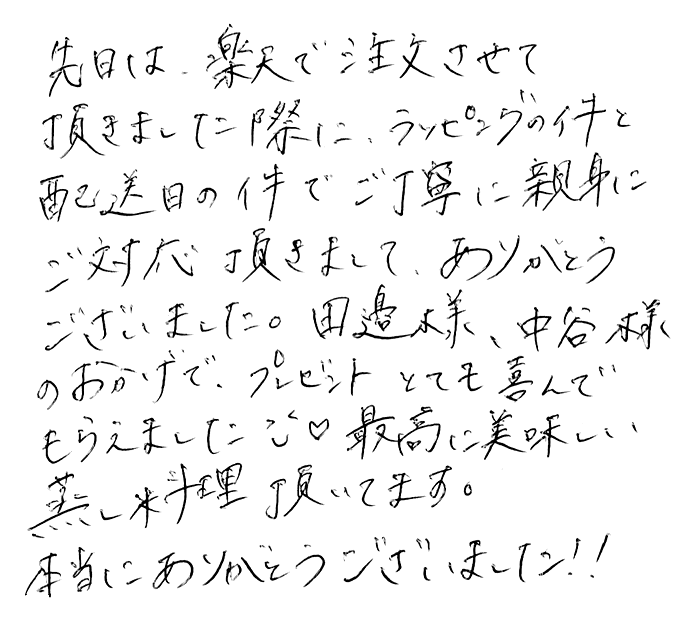 先日は、楽天で注文させて
頂きました際に、ラッピングの件と
配送日の件でご丁寧に親身に
ご対応頂きまして、ありがとう
ございました。田邉様、中谷様
のおかげで、プレゼントとても喜んで
もらえました♡最高に美味しい
蒸し料理頂いてます。
本当にありがとうございました!!